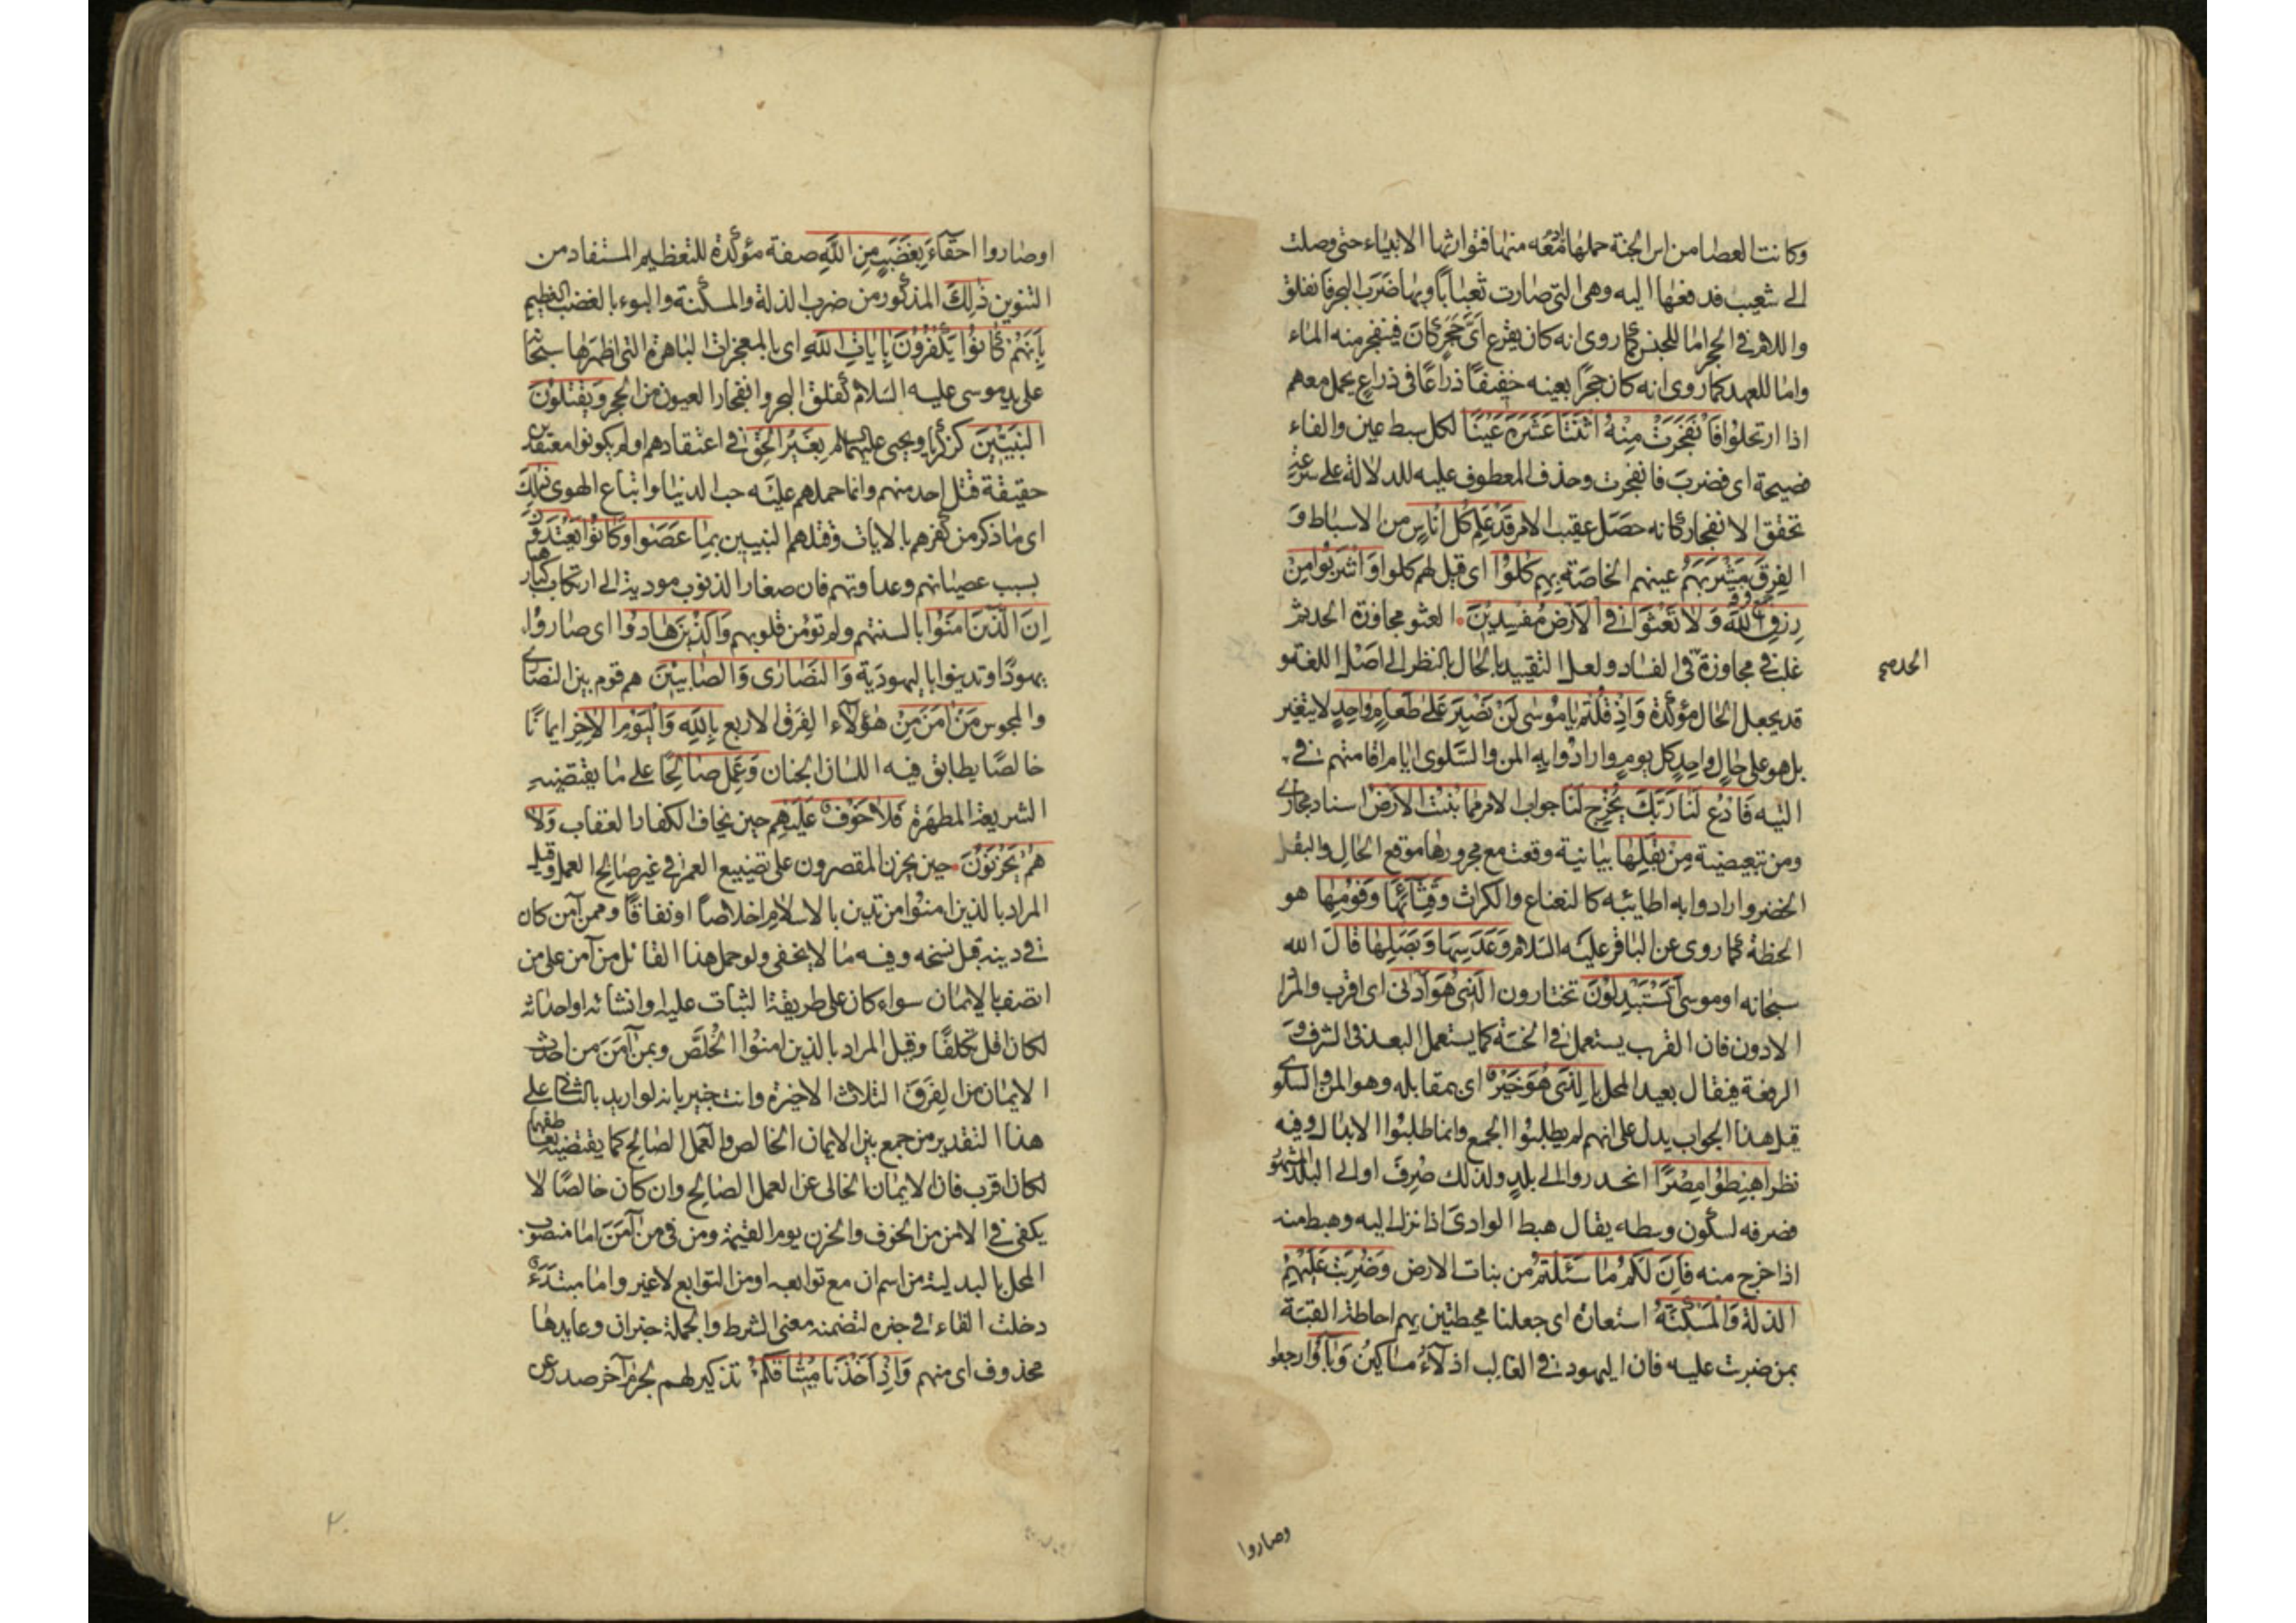 وكانت العصا من اس الجنة حملها آدم معه منها فتوارثها الانبياء حتى وصلت
الى شعيب فدفعها اليه وهى التى صارت ثعبانًا وبها ضرب البحر فانفلق
واللام فى الحجر اما للجنس كما روى انه كان يقرع اى حجر كان فينفجر منه الماء
واما للعهد كما روى انه كان حجرًا بعينه خفيفًا ذراعًا فى ذراع يحمل معهم
اذا ارتحلوا فَانْفَجَرَتْ مِنْهُ اثْنَتَا عَشْرَةَ عَيْنًا لكل سبط عين والفاء
فصيحة اى فضرب فانفجرت وحذف المعطوف عليه للدلالة على سرعة
تحقق الانفجار كانه حصل عقيب الامر قَدْ عَلِمَ كُلُّ اُنَاسٍ من الاسباط و
الفرق مَشْرَبَهُمْ عينهم الخاصة بهم كُلُوا اى قيل لهم كلوا وَاشْرَبُوا مِنْ
رِزْقِ اللهِ وَلَا تَعْثَوْا فِى الْاَرْضِ مُفْسِدِينَ العثو مجاوزة الحد ثم
غلب فى مجاوزته فى الفساد ولعل التقييد بالحال بالنظر الى اصل اللغة و
الحد صح
قد يجعل الحال مؤكدة وَاِذْ قُلْتُمْ يَا مُوسَى لَنْ نَصْبِرَ عَلَى طَعَامٍ وَاحِدٍ لا يتغير
بل هو على حال واحد كل يوم وارادوا به المن والسلوى ايام اقامتهم فى
التيه فَادْعُ لَنَا رَبَّكَ يُخْرِجْ لَنَا جواب الامر مِمَّا تُنْبِتُ الْاَرْضُ اسناد مجازى
ومن تبعيضية مِنْ بَقْلِهَا بيانية وقعت مع مجرورها موقع الحال والبقل
الخضر وارادوا به اطايبه كالنعناع والكراث وَقِثَّائِهَا وَفُومِهَا هو
الحنطة كما روى عن الباقر عليه السلام وَعَدَسِهَا وَبَصَلِهَا قَالَ الله
سبحانه او موسى اَتَسْتَبْدِلُونَ تختارون الَّذِى هُوَ اَدْنَى اى اقرب والمراد
الادون فان القرب يستعمل فى الخسة كما يستعمل البعد فى الشرف و
الرفعة فيقال بعيد المحل بِالَّذِى هُوَ خَيْرٌ اى بمقابله وهو المن والسلوى
قيل هذا الجواب يدل على انهم لم يطلبوا الجمع وانما طلبوا الابدال وفيه
نظر اهْبِطُوا مِصْرًا انحدروا الى بلد ولذلك صرف او الى البلد المشهور
فصرفه لسكون وسطه يقال هبط الوادى اذا نزل اليه وهبط منه
اذا خرج منه فَاِنَّ لَكُمْ مَا سَئَلْتُمْ من بنات الارض وَضُرِبَتْ عَلَيْهِمُ
الذِّلَّةُ وَالْمَسْكَنَةُ استعارة اى جعلنا محيطتين بهم احاطة القبة
بمن ضربت عليه فان اليهود فى الغالب اذلاء مساكين وَبَاؤُا رجعوا
وصاروا
او صاروا احقاء بِغَضَبٍ مِنَ اللهِ صفة مؤكدة للتعظيم المستفاد من
التنوين ذٰلِكَ المذكور من ضرب الذلة والمسكنة والبوء بالغضب العظيم
بِاَنَّهُمْ كَانُوا يَكْفُرُونَ بِاٰيَاتِ اللهِ اى بالمعجزات الباهرة التى اظهرها سبحانه
على يد موسى عليه السلام كفلق البحر وانفجار العيون من الحجر وَيَقْتُلُونَ
النَّبِيِّينَ كزكريا ويحيى عليهما السلام بِغَيْرِ الْحَقِّ فى اعتقادهم اذ لم يكونوا معتقدى
حقيقة قتل احد منهم وانما حملهم عليه حب الدنيا واتباع الهوى ذٰلِكَ
اى ما ذكر من كفرهم بالايات وقتلهم النبيين بِمَا عَصَوْا وَكَانُوا يَعْتَدُونَ
بسبب عصيانهم وعداوتهم فان صغار الذنوب مودية الى ارتكاب كبارها
اِنَّ الَّذِينَ اٰمَنُوا بالسنتهم ولم تؤمن قلوبهم وَالَّذِينَ هَادُوا اى صاروا
يهودًا او تدينوا باليهودية وَالنَّصَارَى وَالصَّابِئِينَ هم قوم بين النصارى
والمجوس مَنْ اٰمَنَ من هؤلاء الفرق الاربع بِاللهِ وَالْيَوْمِ الْاٰخِرِ ايمانًا
خالصًا يطابق فيه اللسان الجنان وَعَمِلَ صَالِحًا على ما يقتضيه
الشريعة المطهرة فَلَا خَوْفٌ عَلَيْهِمْ حين يخاف الكفار العقاب وَلَا
هُمْ يَحْزَنُونَ حين يحزن المقصرون على تضييع العمر فى غير صالح العمل وقيل
المراد بالذين امنوا من تدين بالاسلام اخلاصًا او نفاقًا وممن آمن كان
فى دينه قبل نسخه وفيه ما لا يخفى ولو حمل هذا القائل من آمن على من
اتصف بالايمان سواء كان على طريقة الثبات عليه وانشائه او احداثه
لكان اقل تكلفًا وقيل المراد بالذين امنوا الخلص وبمن آمن من احدث
الايمان من الفرق الثلاث الاخيرة وانت خبير بانه لو اريد بالثانى على
هذا التقدير من جمع بين الايمان الخالص والعمل الصالح كما يقتضيه تعاطفهما
لكان اقرب فان الايمان الخالى عن العمل الصالح وان كان خالصًا لا
يكفى فى الامن من الخوف والحزن يوم القيمة ومن فى من آمن اما منصوب
المحل بالبدلية من اسم ان مع توابعه او من التوابع لا غير واما مبتدء
دخلت الفاء فى خبره لتضمنه معنى الشرط والجملة خبر ان وعايدها
محذوف اى منهم وَاِذْ اَخَذْنَا مِيثَاقَكُمْ تذكير لهم بجرم آخر صدر عن
٢٠